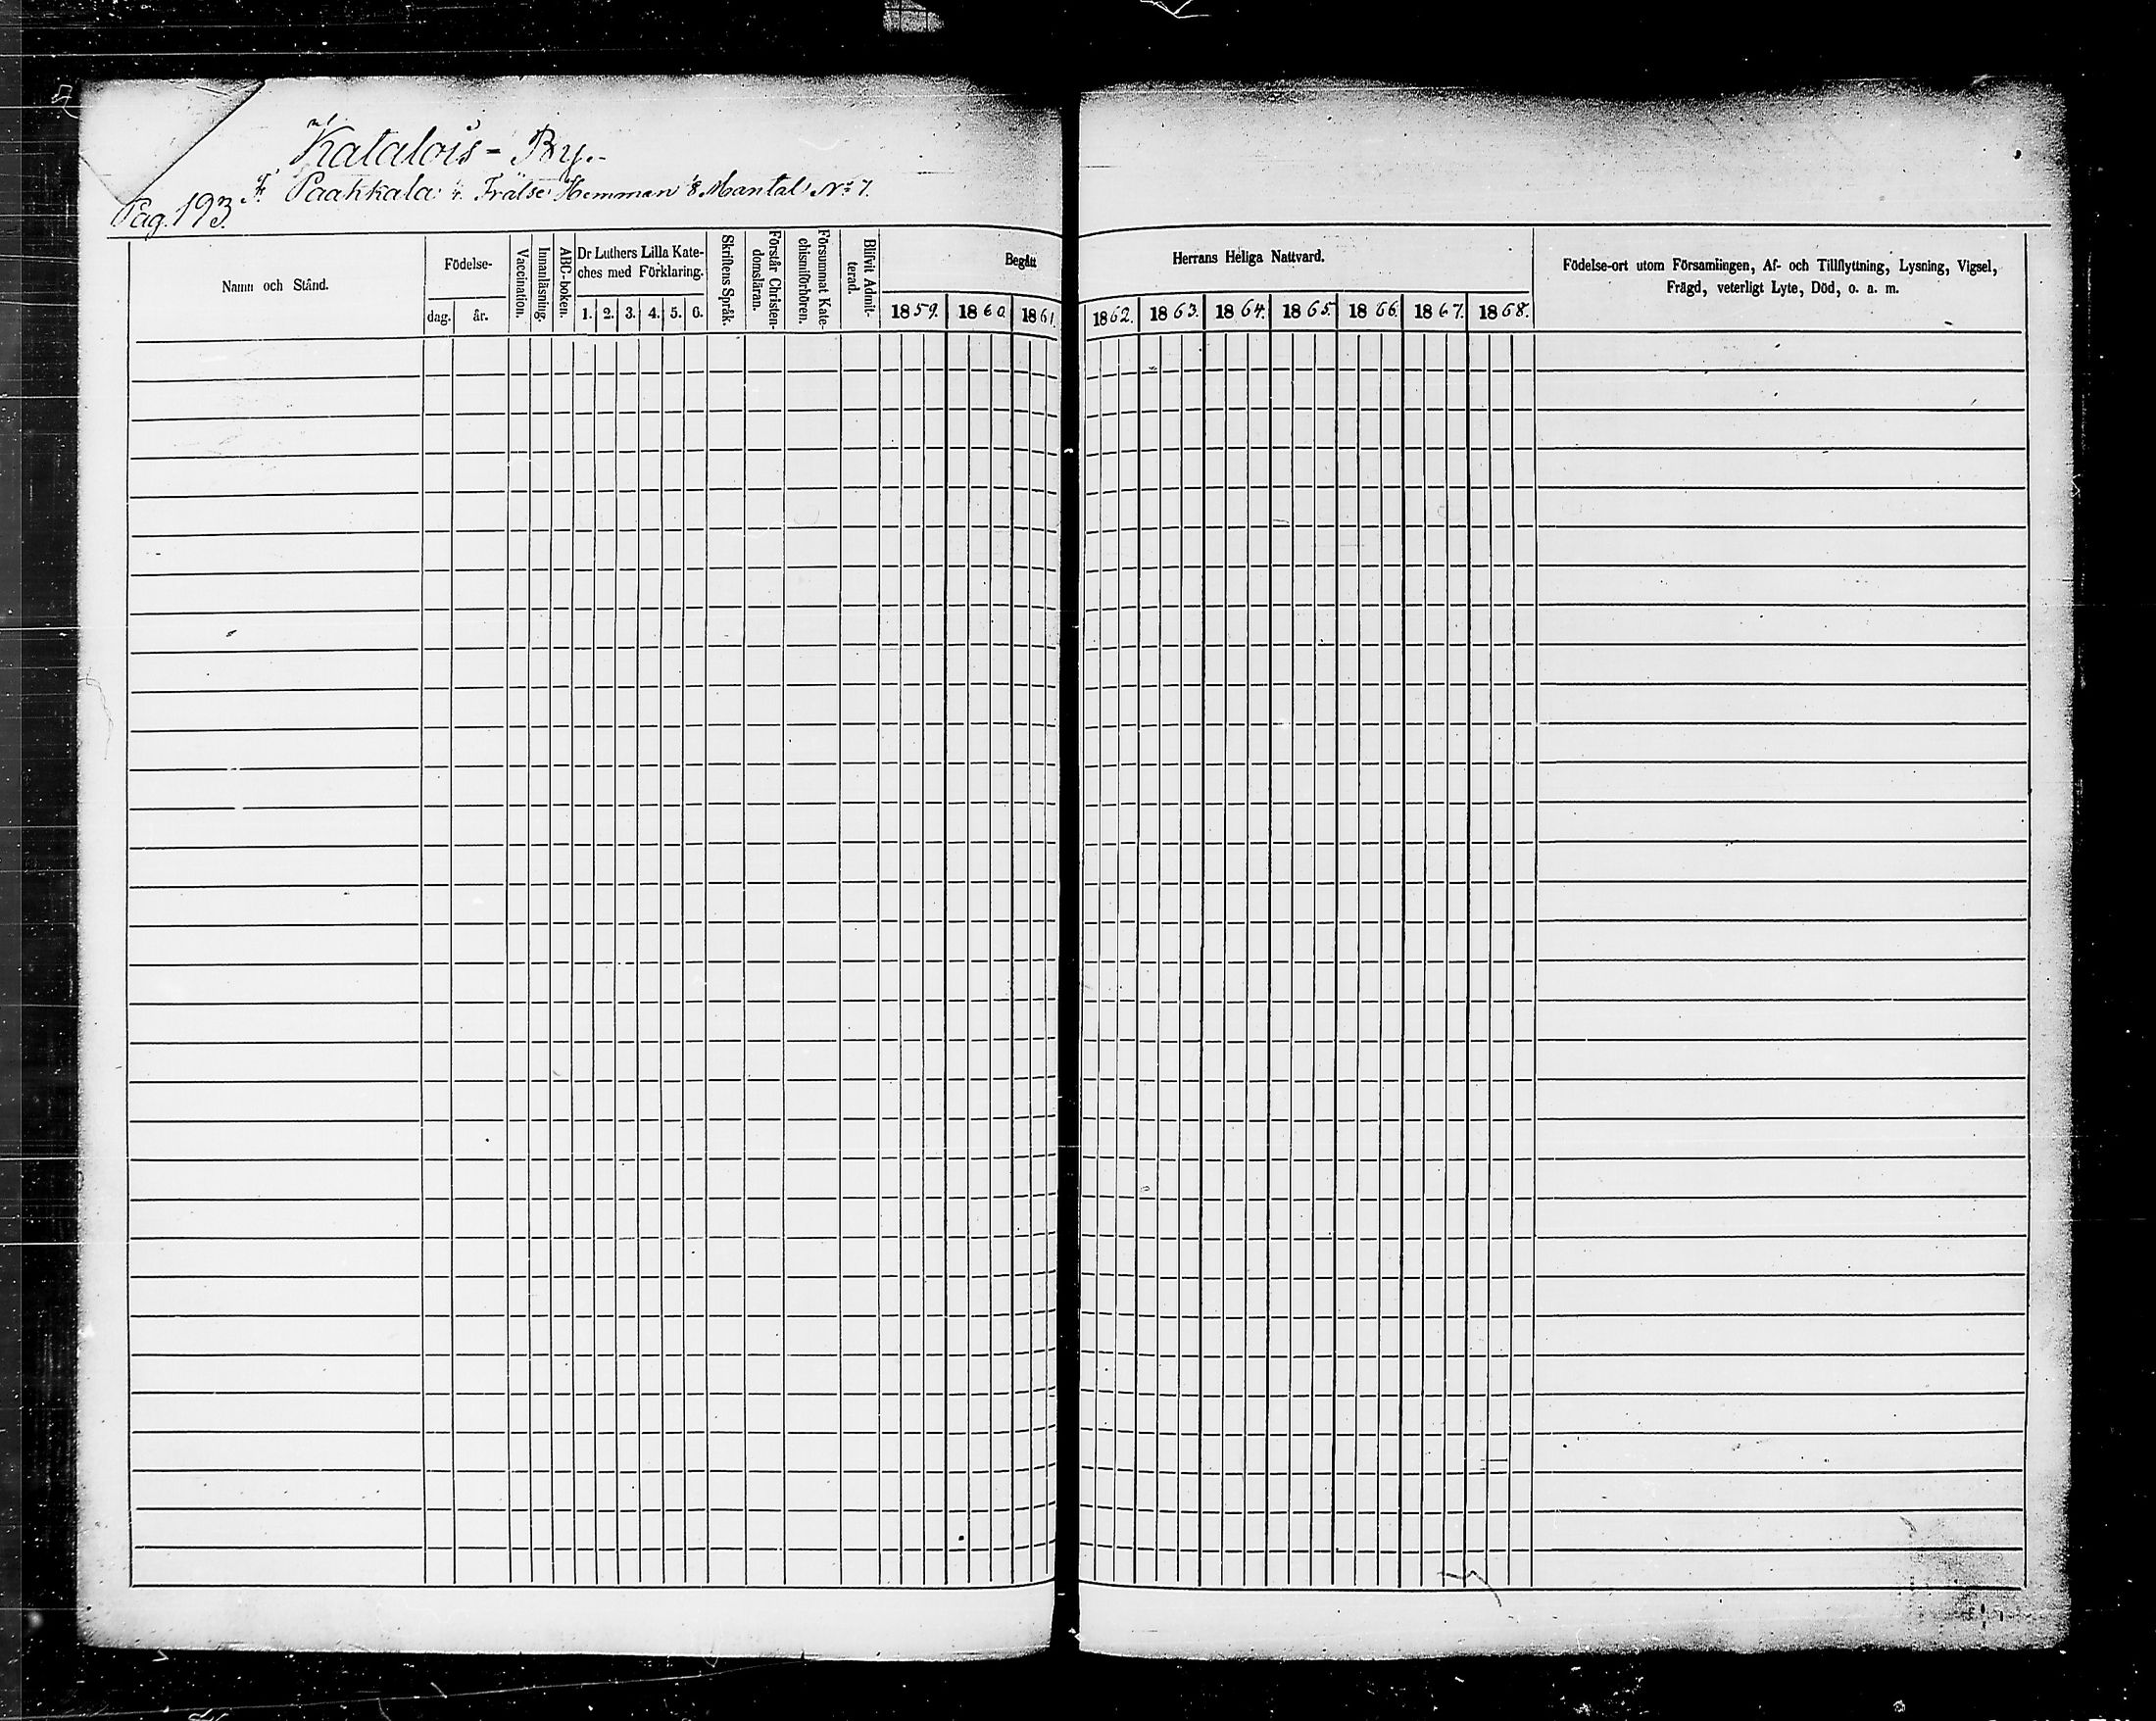 Katalois - By.
Paahkala Frälse Hemman 1/8 Mantal No 7.
Pag. 193.
Namn och Stånd.
Födelse-
dag. år.
Vaccination.
Innanläsning.
ABC-boken.
Dr Luthers Lilla Kate-
ches med Förklaring.
1. 2. 3. 4. 5. 6.
Skriftens Språk.
Förstår Christen-
domsläran.
Försummat Kate-
chismiförhören.
Blifvit Admit-
terad.
Begått Herrans Heliga Nattvard.
1859. 1860. 1861. 1862. 1863. 1864. 1865. 1866. 1867. 1868.
Födelse-ort utom Församlingen, Af- och Tillflyttning, Lysning, Vigsel,
Frägd, veterligt Lyte, Död, o. a. m.